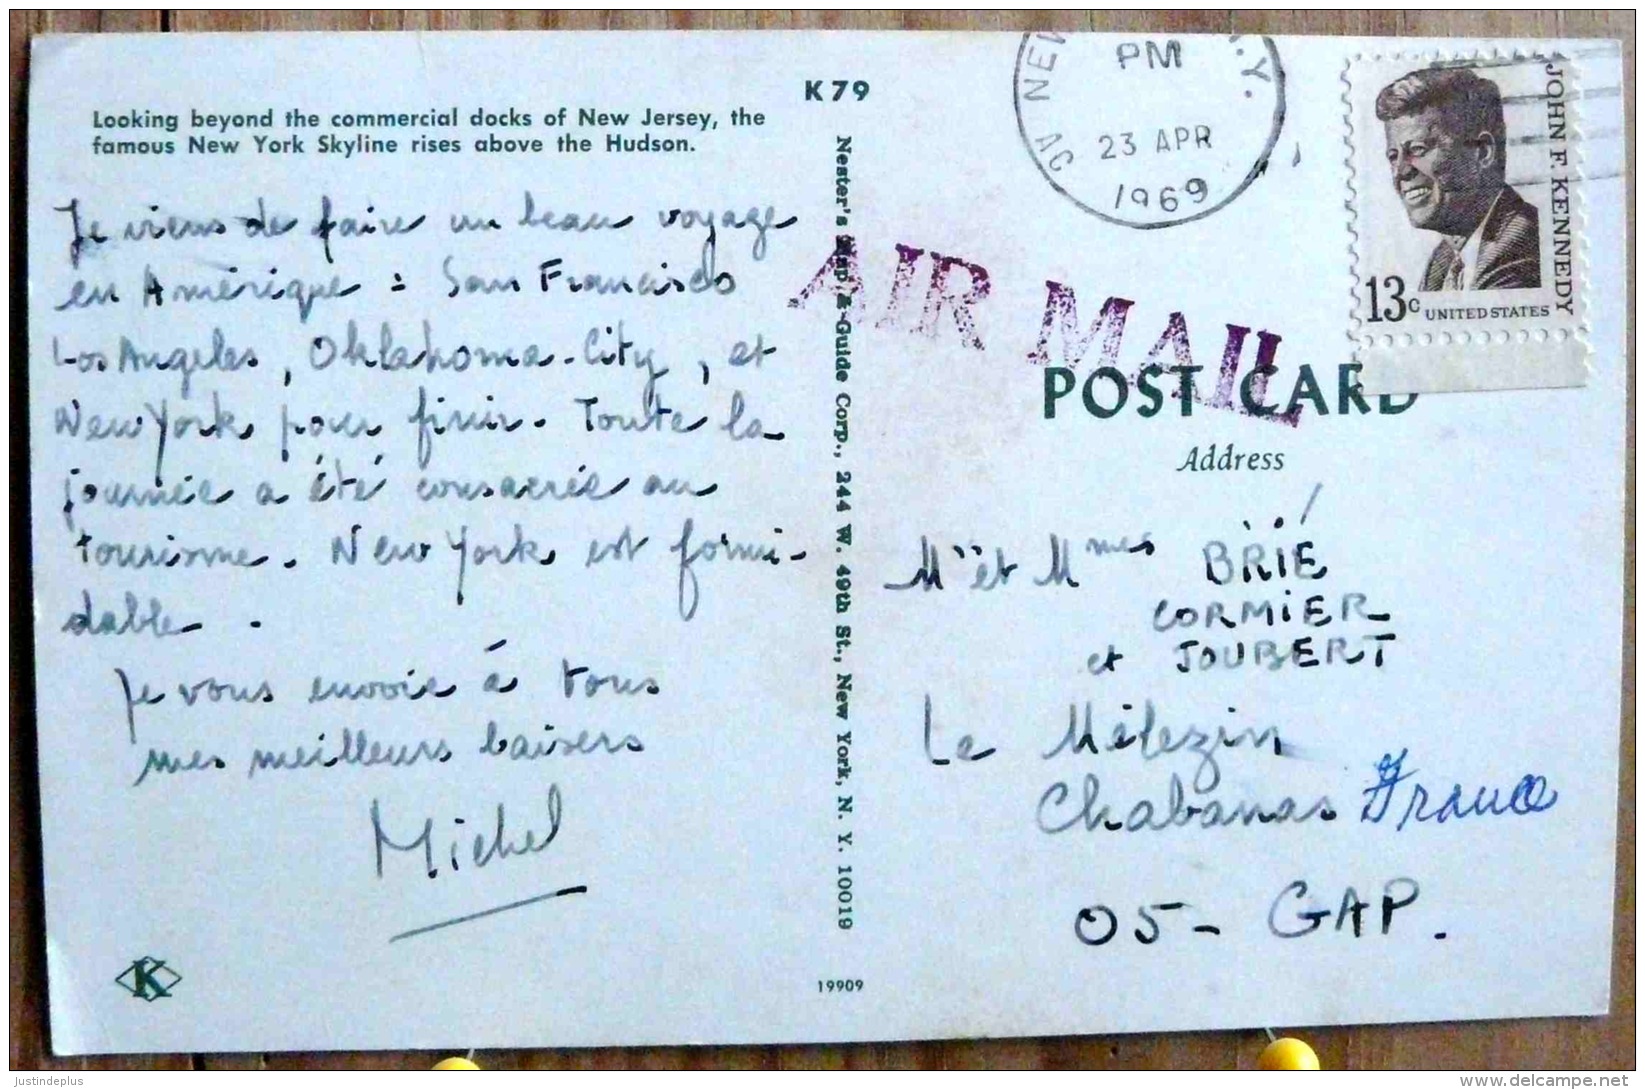 K79
Looking beyond the commercial docks of New Jersey, the
famous New York Skyline rises above the Hudson.
Je viens de faire un beau voyage
en Amérique : San Francisco
Los Angeles, Oklahoma-City, et
New York pour finir. Toute la
journée a été consacrée au
tourisme. New York est formi-
dable.
Je vous envoie à tous
mes meilleurs baisers
Michel
K
Nester's Map & Guide Corp., 244 W. 49th St., New York, N. Y. 10019
19909
AC NEW N.Y.
PM
23 APR
1969
JOHN F. KENNEDY
13c UNITED STATES
AIR MAIL
POST CARD
Address
Mr et Mmes BRIÉ
CORMIER
et JOUBERT
Le Mélezin
Chabanas France
05 - GAP.
Justindeplus
delcampe.net